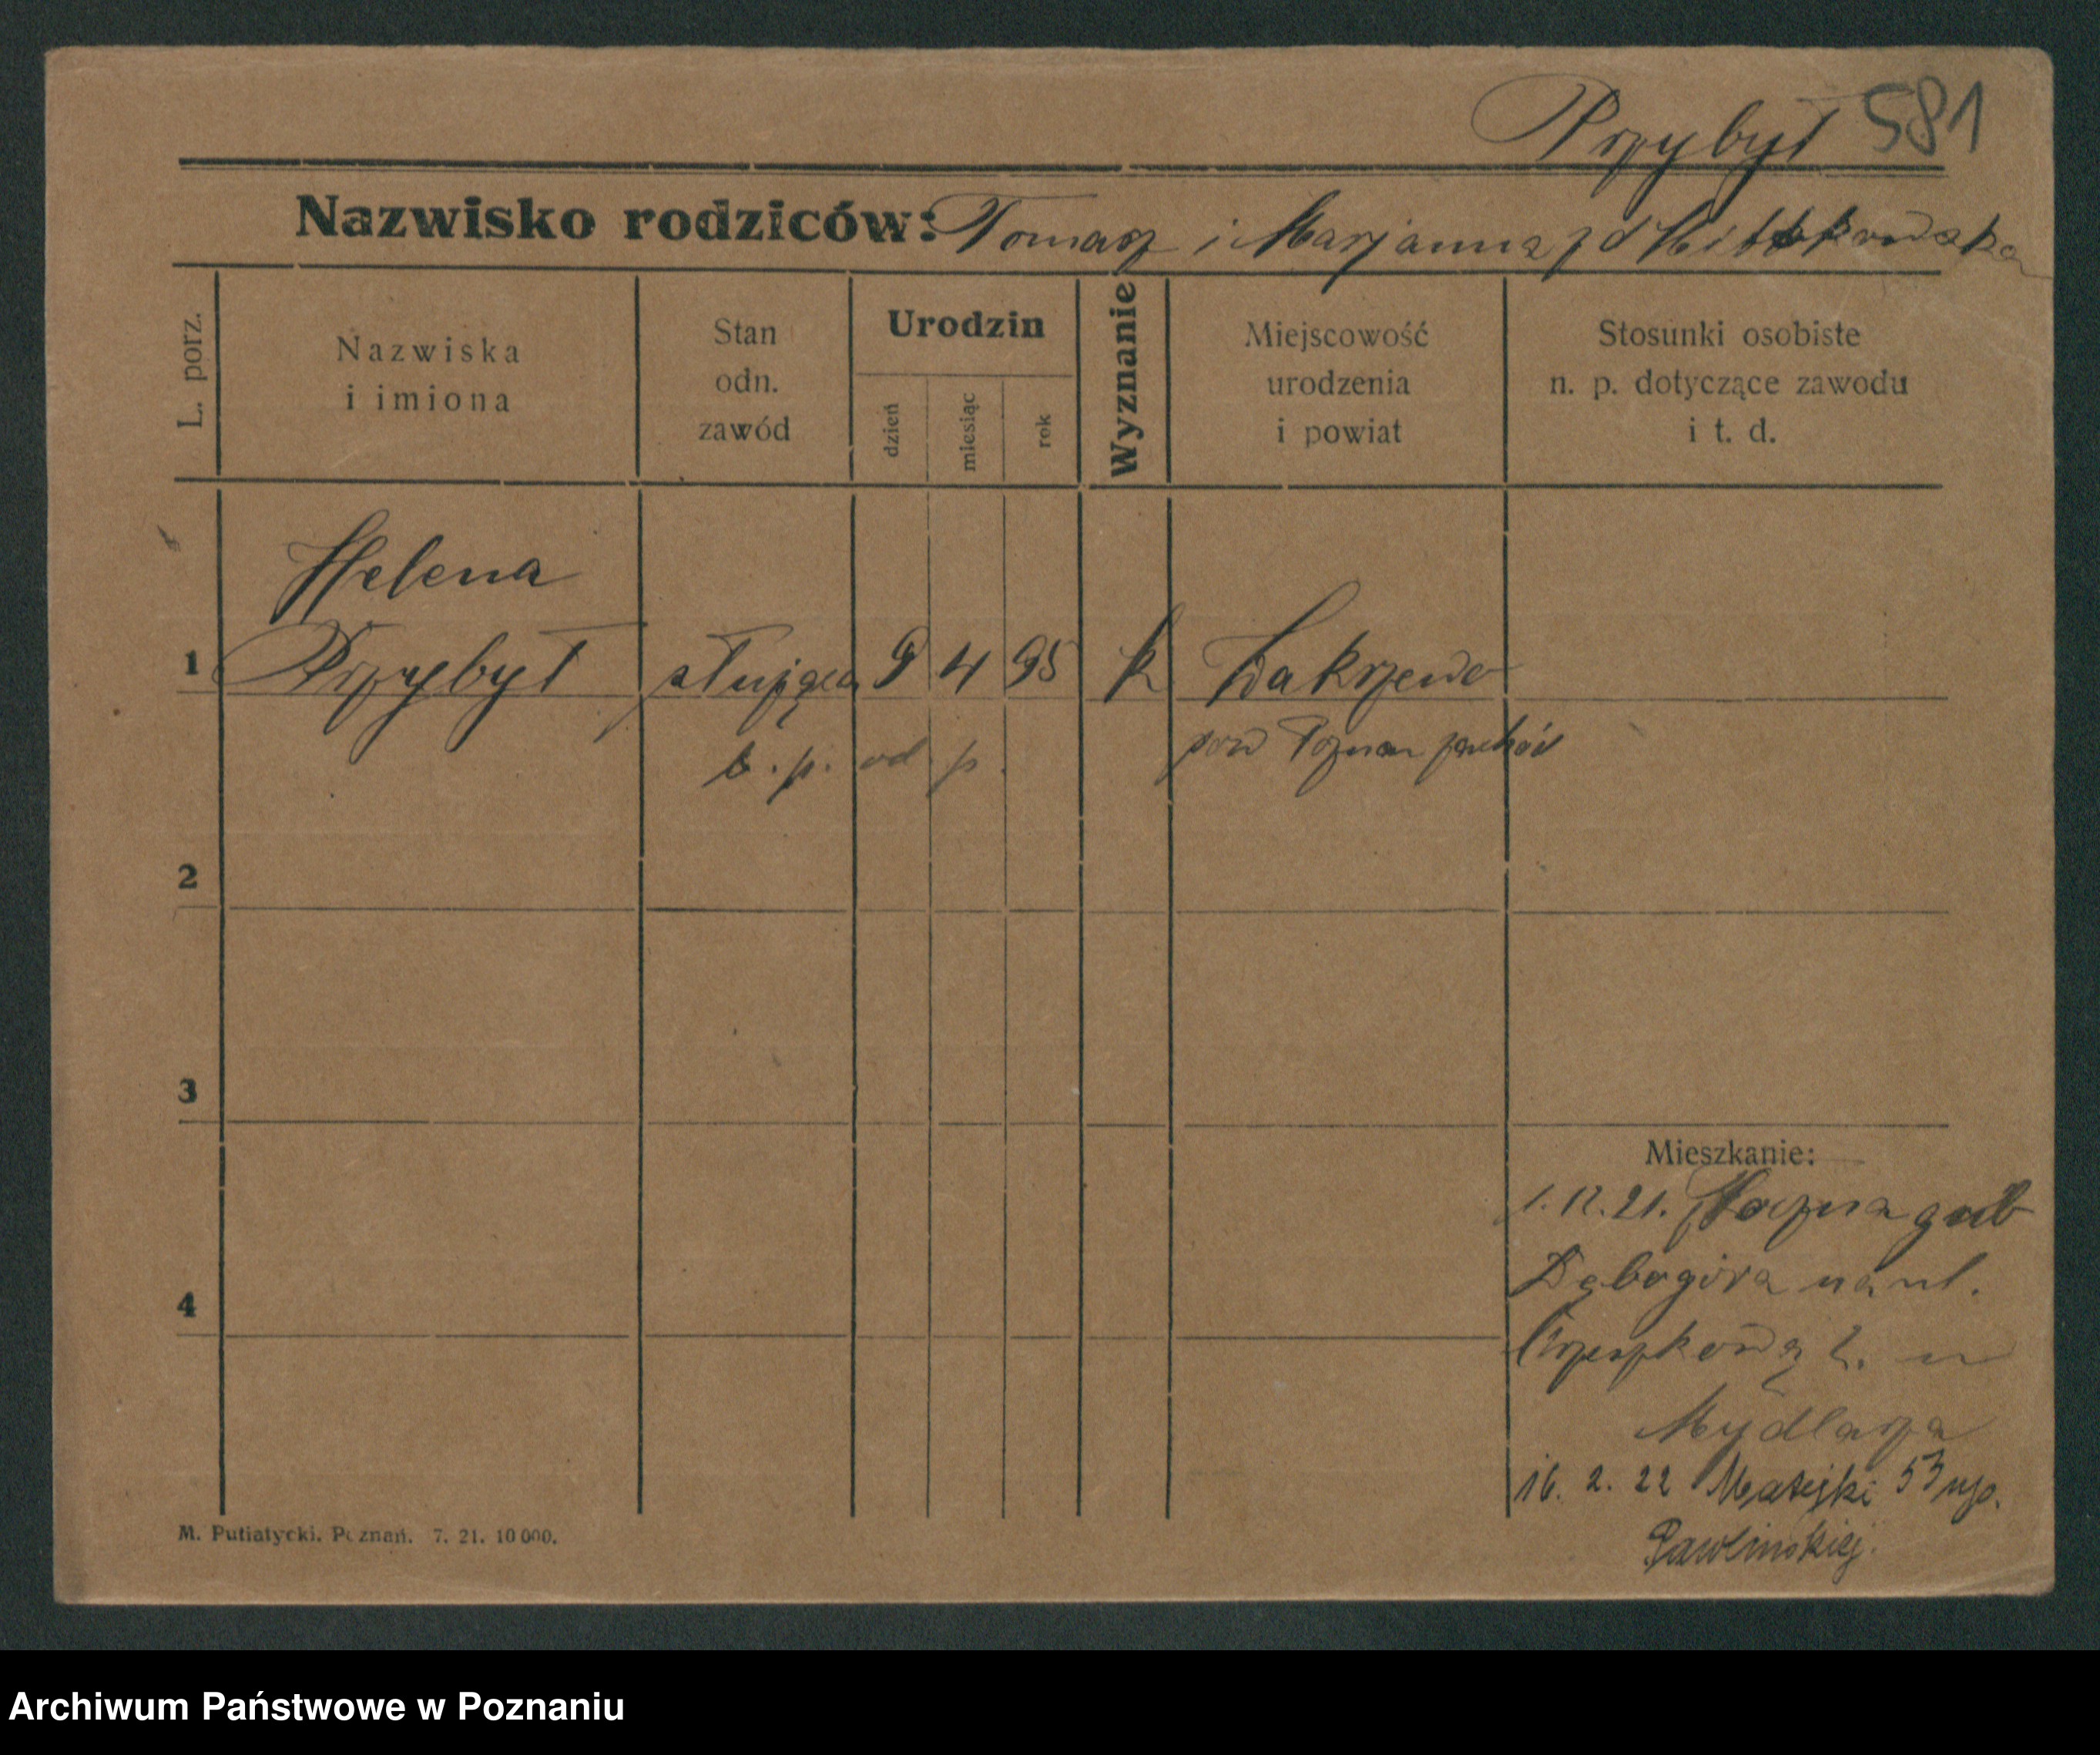 Przybył 581
Nazwisko rodziców: Tomasz i Marjanna z d
L. porz.
Nazwiska
i imiona
Stan
odn.
zawód
Urodzin
dzień
miesiąc
rok
Wyznanie
Miejscowość
urodzenia
i powiat
Stosunki osobiste
n. p. dotyczące zawodu
i t. d.
Helena
1 Przybył służąca 9 4 95 k Zakrzewo
b. p. od p. pow Poznan zachód
2
3
Mieszkanie:
1.12.21.
Dąbogóra na ul.
4
Mydlarza
16. 2. 22 Matejki 53 u p.
Pawlińskiej.
M. Putiatycki. Poznań. 7. 21. 10 000.
Archiwum Państwowe w Poznaniu